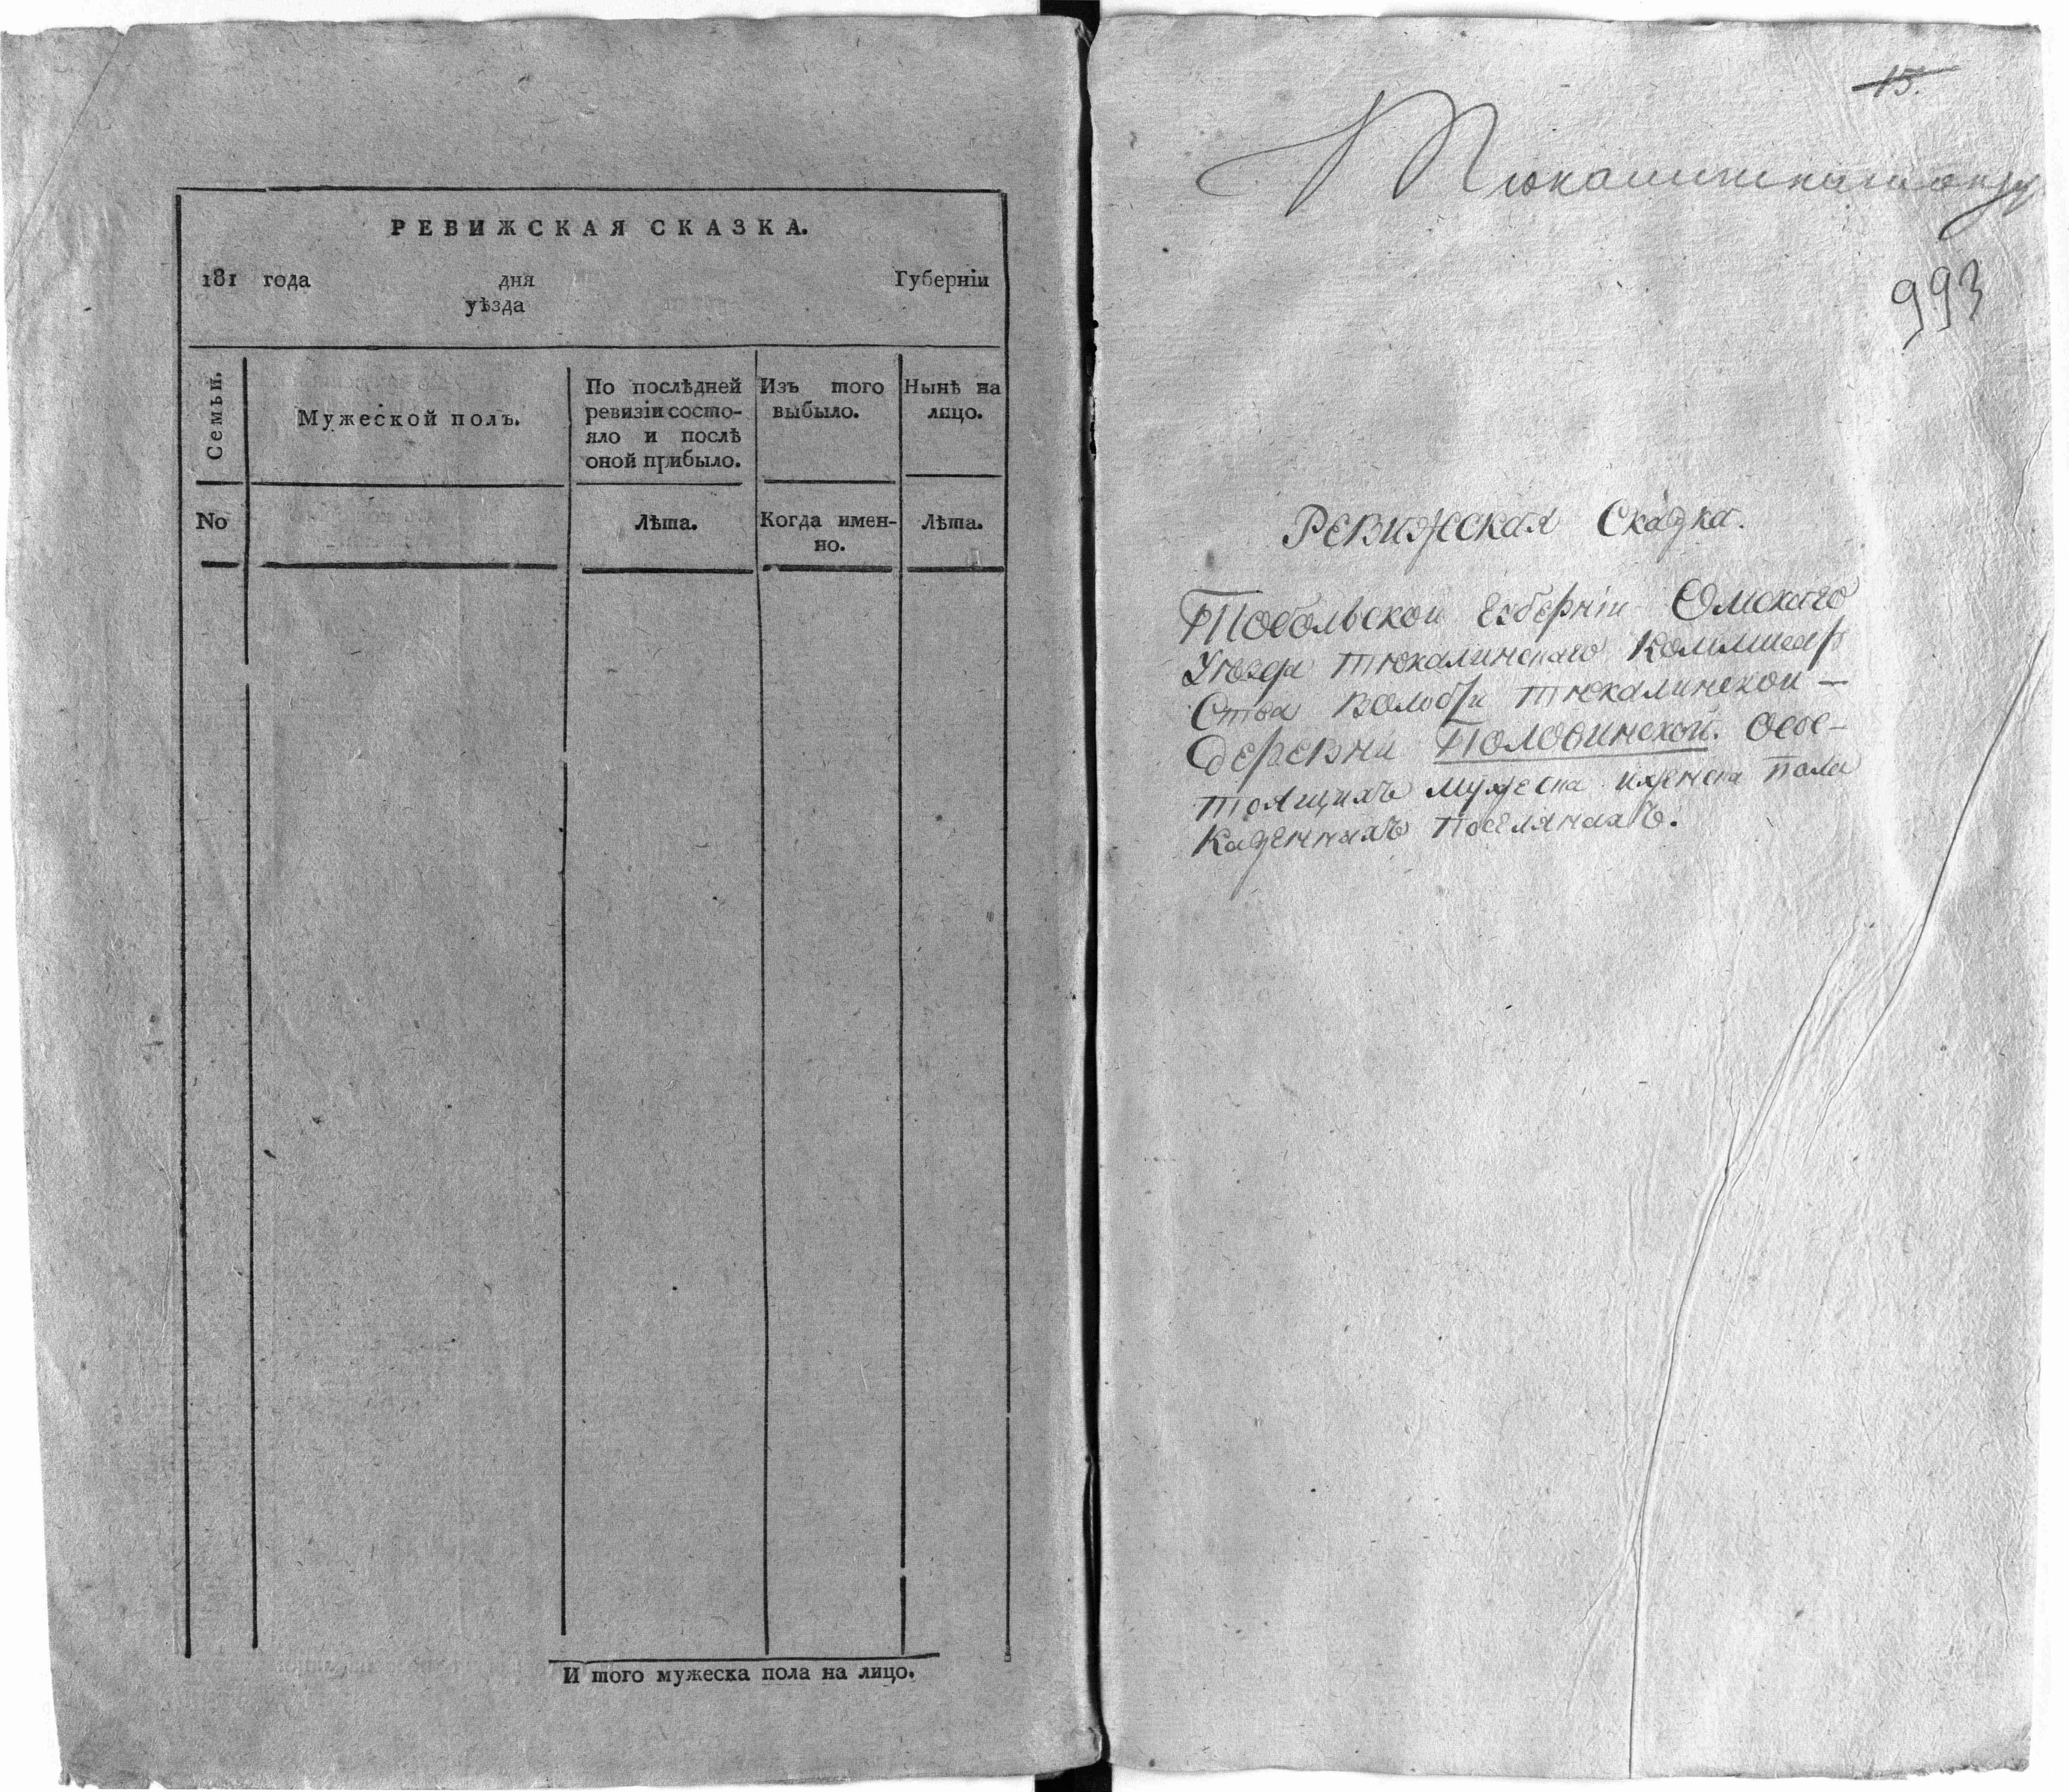 РЕВИЖСКАЯ СКАЗКА.
181 года дня Губернїи
уѣзда
Семьи.
Мужеской полъ.
По послѣдней
ревизїи состо-
яло и послѣ
оной прибыло.
Изъ того
выбыло.
Нынѣ на
лицо.
No
Лѣта.
Когда имен-
но.
Лѣта.
И того мужеска пола на лицо.
15.
993
Ревижская Сказка.
Тобольской Губернїи Омскаго
Уѣзда Тюкалинскаго Коммисар
Ства волости Тюкалинской —
деревни Половинской. Осос-
тоящихъ мужеска и женска пола
Казенныхъ поселянахъ.